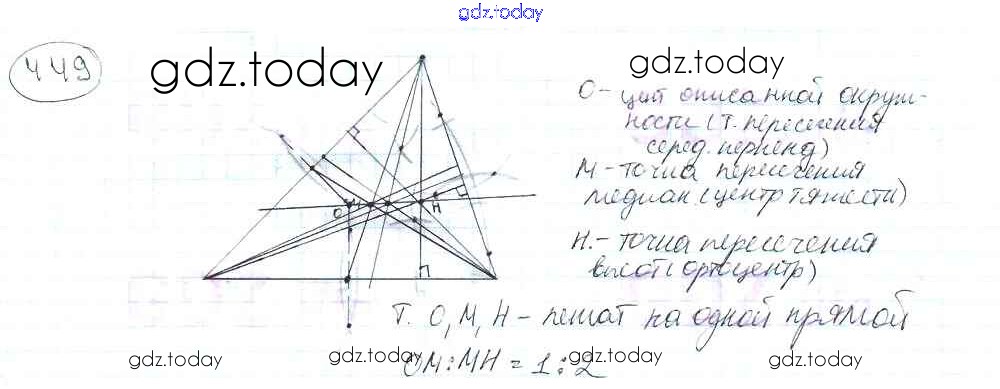 gdz.today
449
gdz.today
gdz.today
О - цит описанной окруж-
ности (т. пересечения
серед. перпенд)
М - точка пересечения
медиан. (центр тяжести)
О М Н
Н. - точка пересечения
высот (ортоцентр)
Т. О, М, Н - лежат на одной прямой
gdz.today gdz.today gdz.today gdz.today
ОМ:МН = 1:2